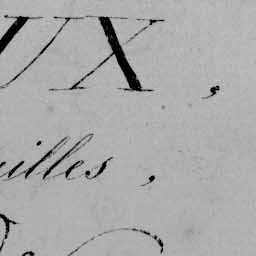 UX,
uilles,